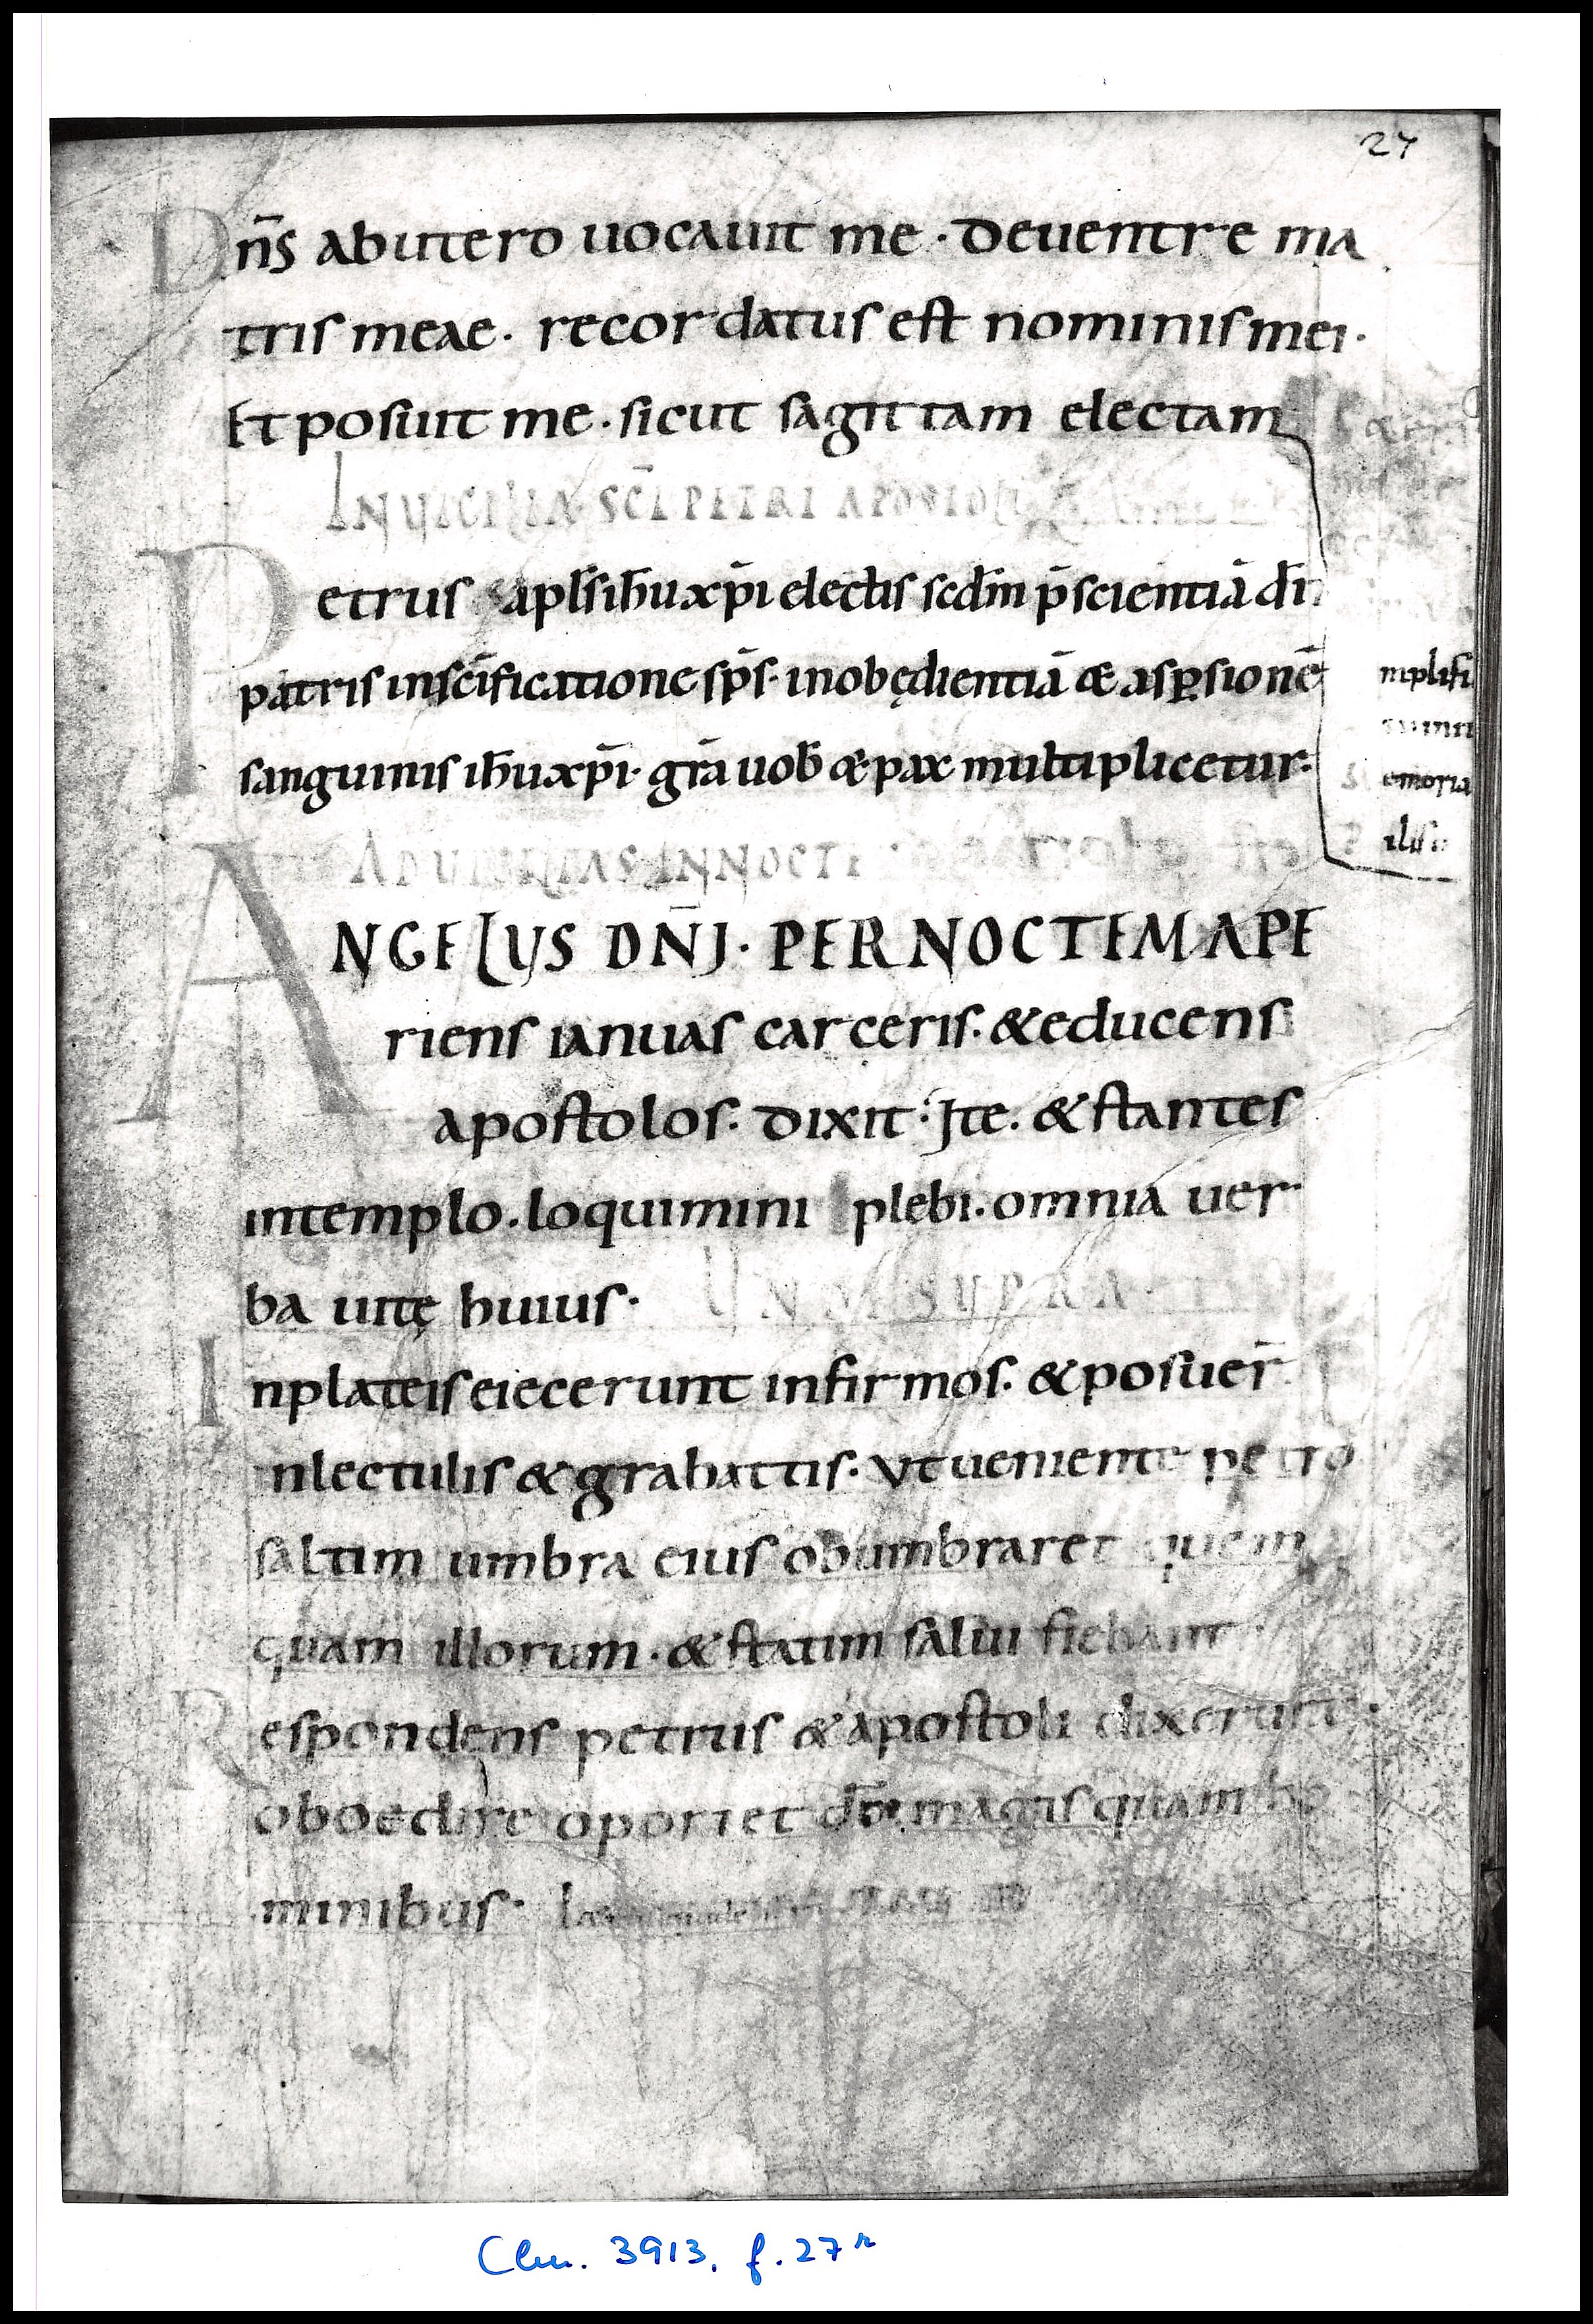 27
Dn̄s ab utero uocauit me · de uentre ma
tris meae · recordatus est nominis mei ·
Et posuit me · sicut sagittam electam
IN VIGILIA SC̄I PETRI APOSTOLI
Petrus apl̄s ih̄u xp̄i electis scdm̄ p̄scientiā dī
patris in sc̄ificatione sp̄s · in obędientiā & aspersionē
sanguinis ih̄u xp̄i · grā uob̄ & pax multiplicetur ·
mplifi
emoria
AD IN NOCTE
ANGELUS DN̄I · PER NOCTEM APE
riens ianuas carceris · & educens
apostolos · dixit · Ite · & stantes
in templo · loquimini plebi · omnia uer
ba uitę huius · SUPRA
In plateis eiecerunt infirmos · & posuer̄
n lectulis & grabattis · ut ueniente petro
saltim umbra eius obumbraret quem
quam illorum · & statim salui fiebant ·
Respondens petrus & apostoli dixerunt ·
oboedire oportet dō magis quam ho
minibus ·
Clm. 3913, f. 27r